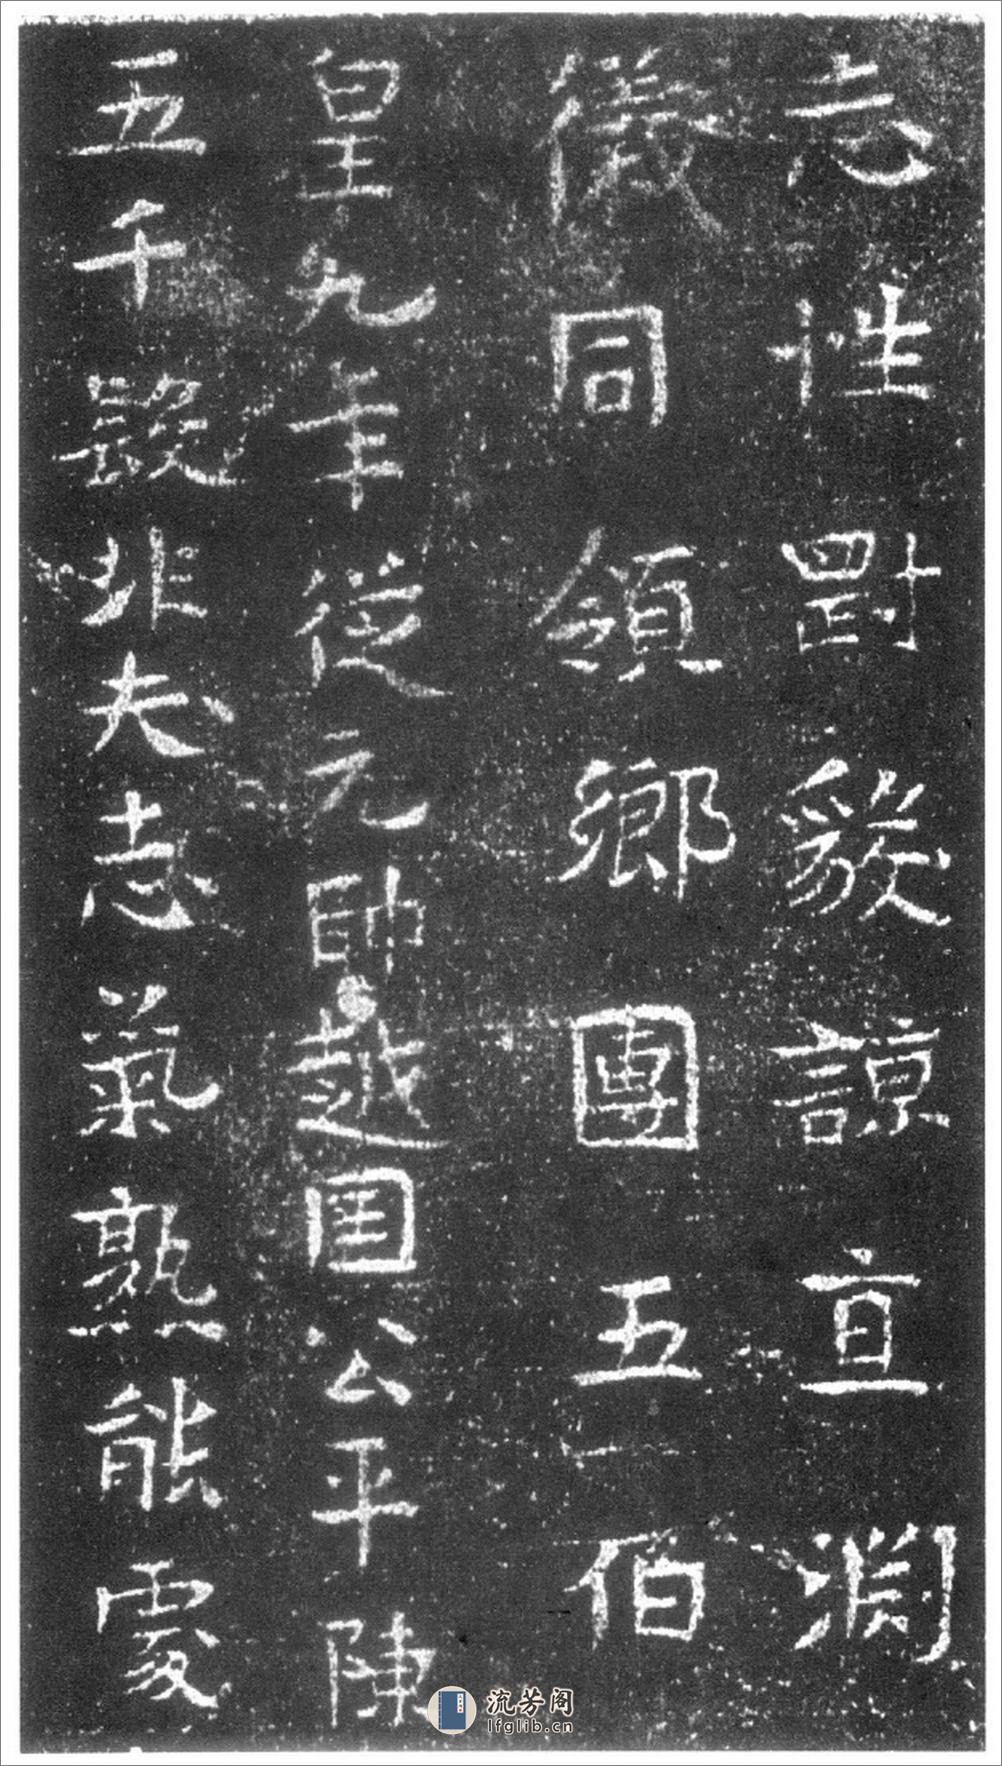 志性剛毅諒直渕
儀同領鄉團五伯
皇九年從元帥越囯公平陳
五千段非夫志氣熟能處
流芳阁
lfglib.cn